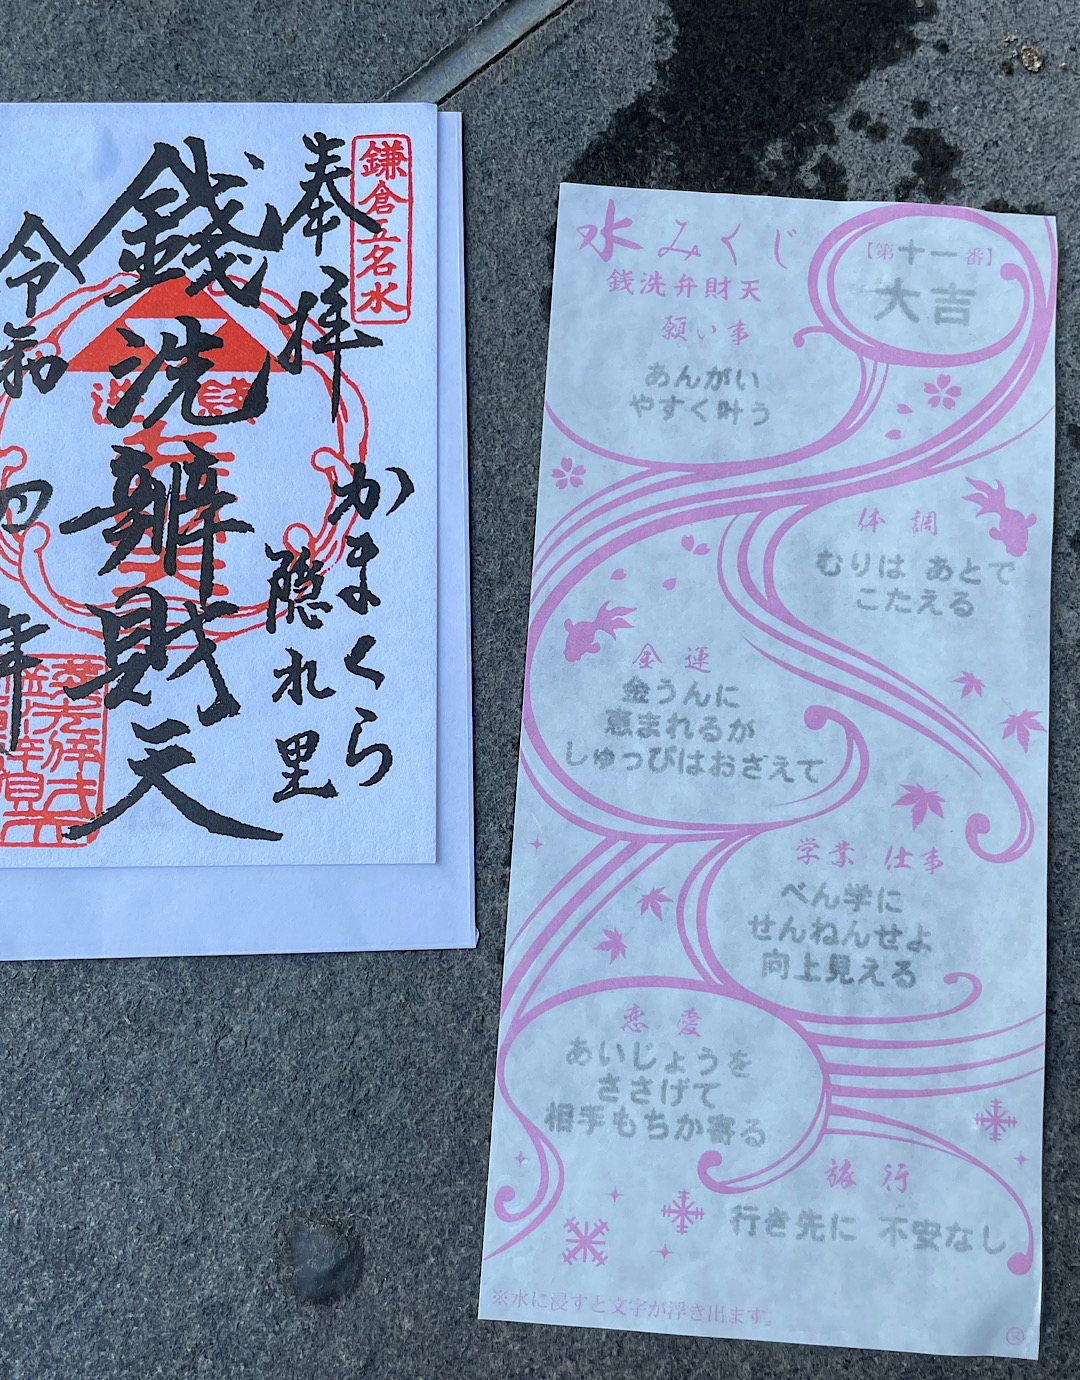 鎌倉五名水
奉拝
かまくら
隠れ里
銭洗辨財天
令和
四
年
水みくじ
銭洗弁財天
【第十一番】
大吉
願い事
あんがい
やすく叶う
体調
むりは あとで
こたえる
金運
金うんに
恵まれるが
しゅっぴはおさえて
学業 仕事
べん学に
せんねんせよ
向上見える
恋愛
あいじょうを
ささげて
相手もちか寄る
旅行
行き先に 不安なし
※水に浸すと文字が浮き出ます。